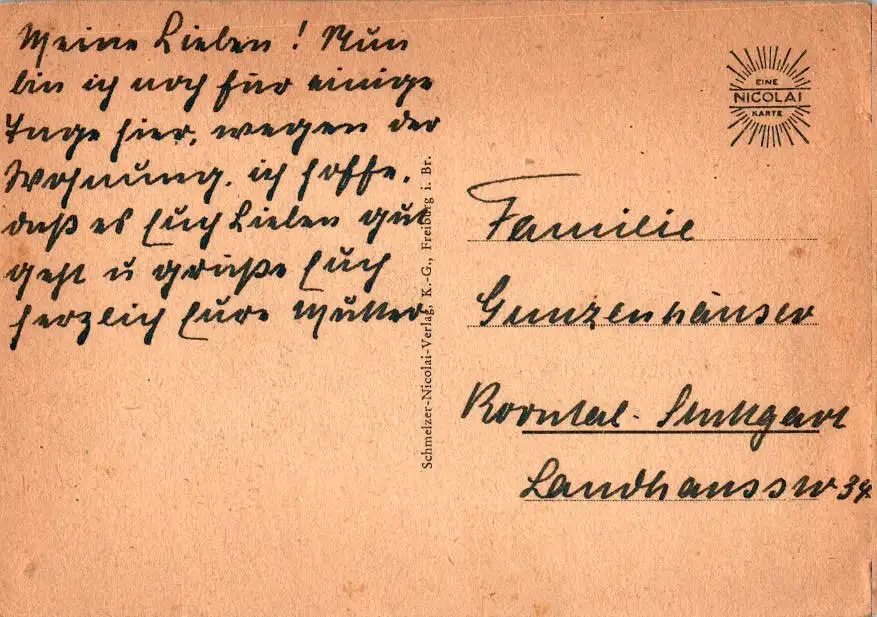 Meine Lieben! Nun
bin ich noch für einige
Tage hier, wegen der
Wohnung. ich hoffe,
daß es Euch Lieben gut
geht u grüße Euch
herzlich Eure Mutter
Schmelzer-Nicolai-Verlag, K.-G., Freiburg i. Br.
EINE
NICOLAI
KARTE
Familie
Gunzenhäuser
Korntal-Stuttgart
Landhausstr 34